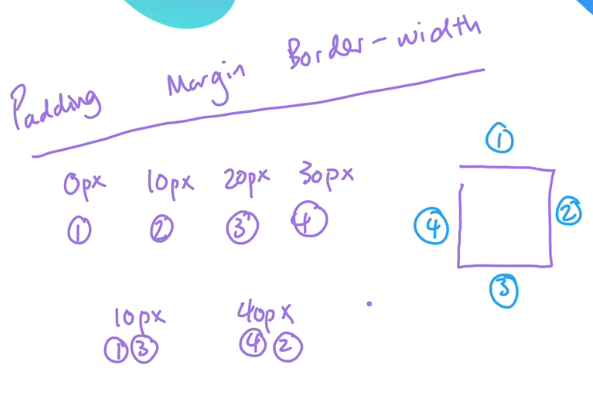 Padding Margin Border-width
0px 10px 20px 30px
① ② ③ ④
10px 40px
①③ ④②
①
④ ②
③